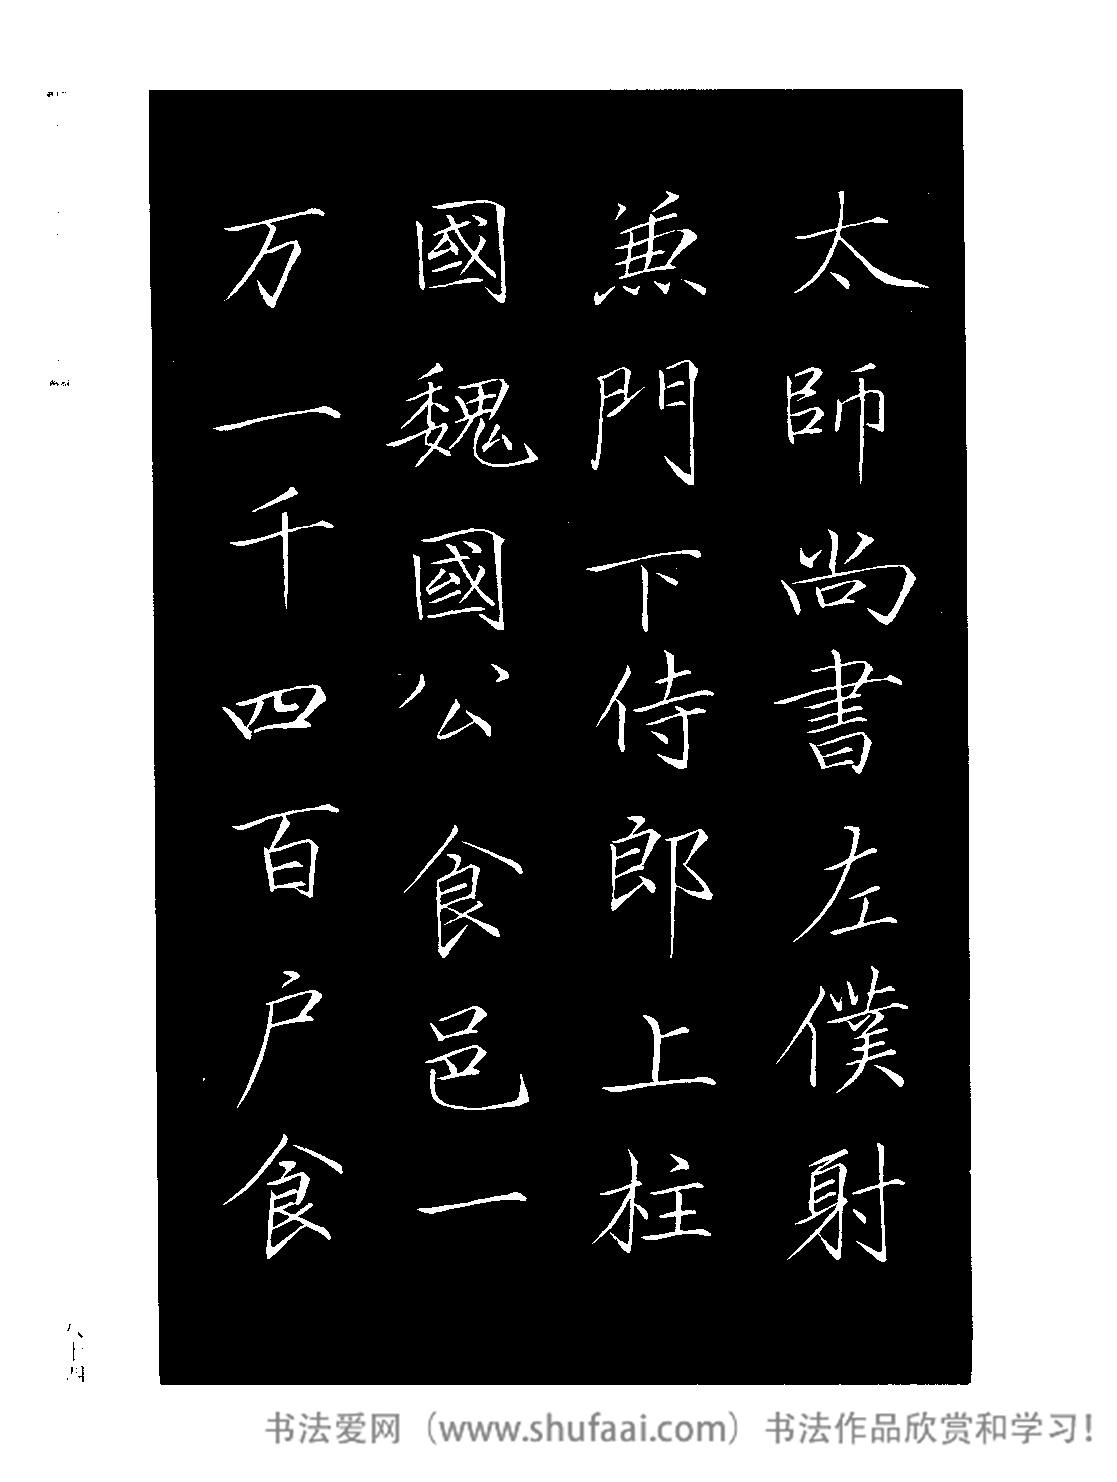 太師尚書左僕射
兼門下侍郎上柱
國魏國公食邑一
万一千四百户食
八十四
书法爱网（www.shufaai.com）书法作品欣赏和学习！